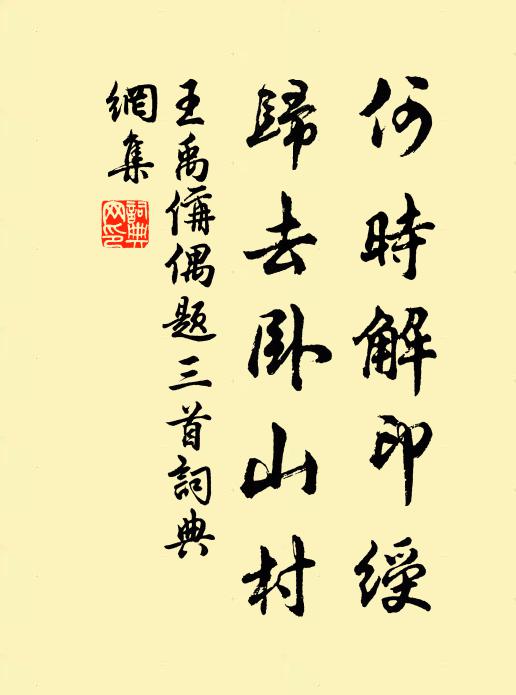 何時解印綬
歸去卧山村
王禹偁偶題三首詞典
網集
詞典網印